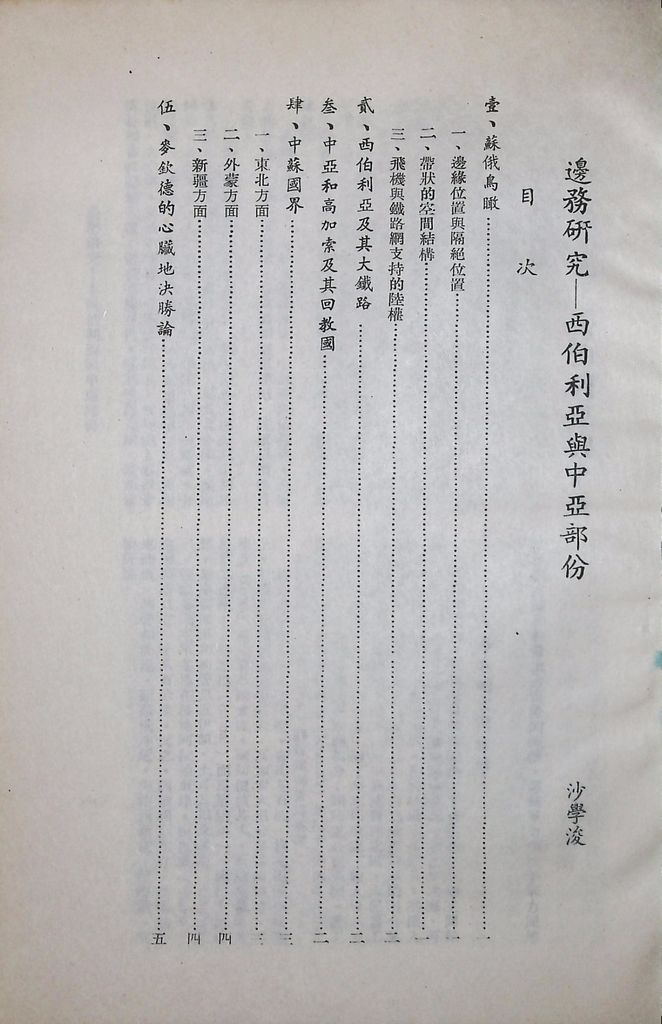 邊務研究—西伯利亞與中亞部份
沙學浚
目次
壹、蘇俄鳥瞰……一
一、邊緣位置與隔絕位置……一
二、帶狀的空間結構……一
三、飛機與鐵路網支持的陸權……二
貳、西伯利亞及其大鐵路……二
叁、中亞和高加索及其回教國……二
肆、中蘇國界……三
一、東北方面……三
二、外蒙方面……四
三、新疆方面……四
伍、麥欽德的心臟地決勝論……五